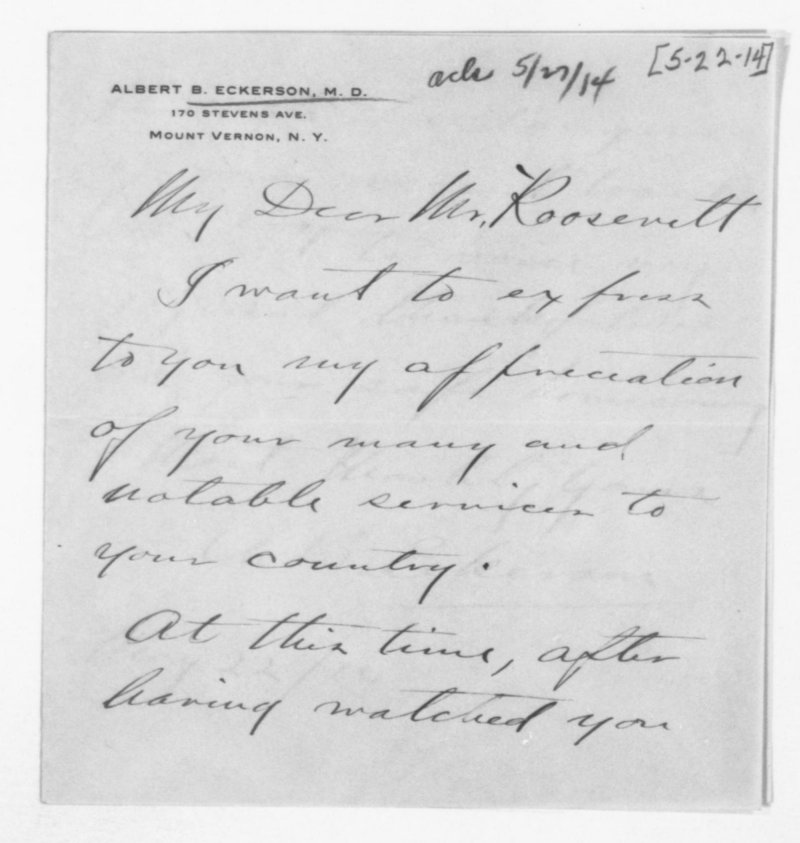 ALBERT B. ECKERSON, M. D.
170 STEVENS AVE.
MOUNT VERNON, N. Y.
ack 5/27/14
[5-22-14]
My Dear Mr. Roosevelt
I want to express
to you my appreciation
of your many and
notable services to
your country.
At this time, after
having watched you